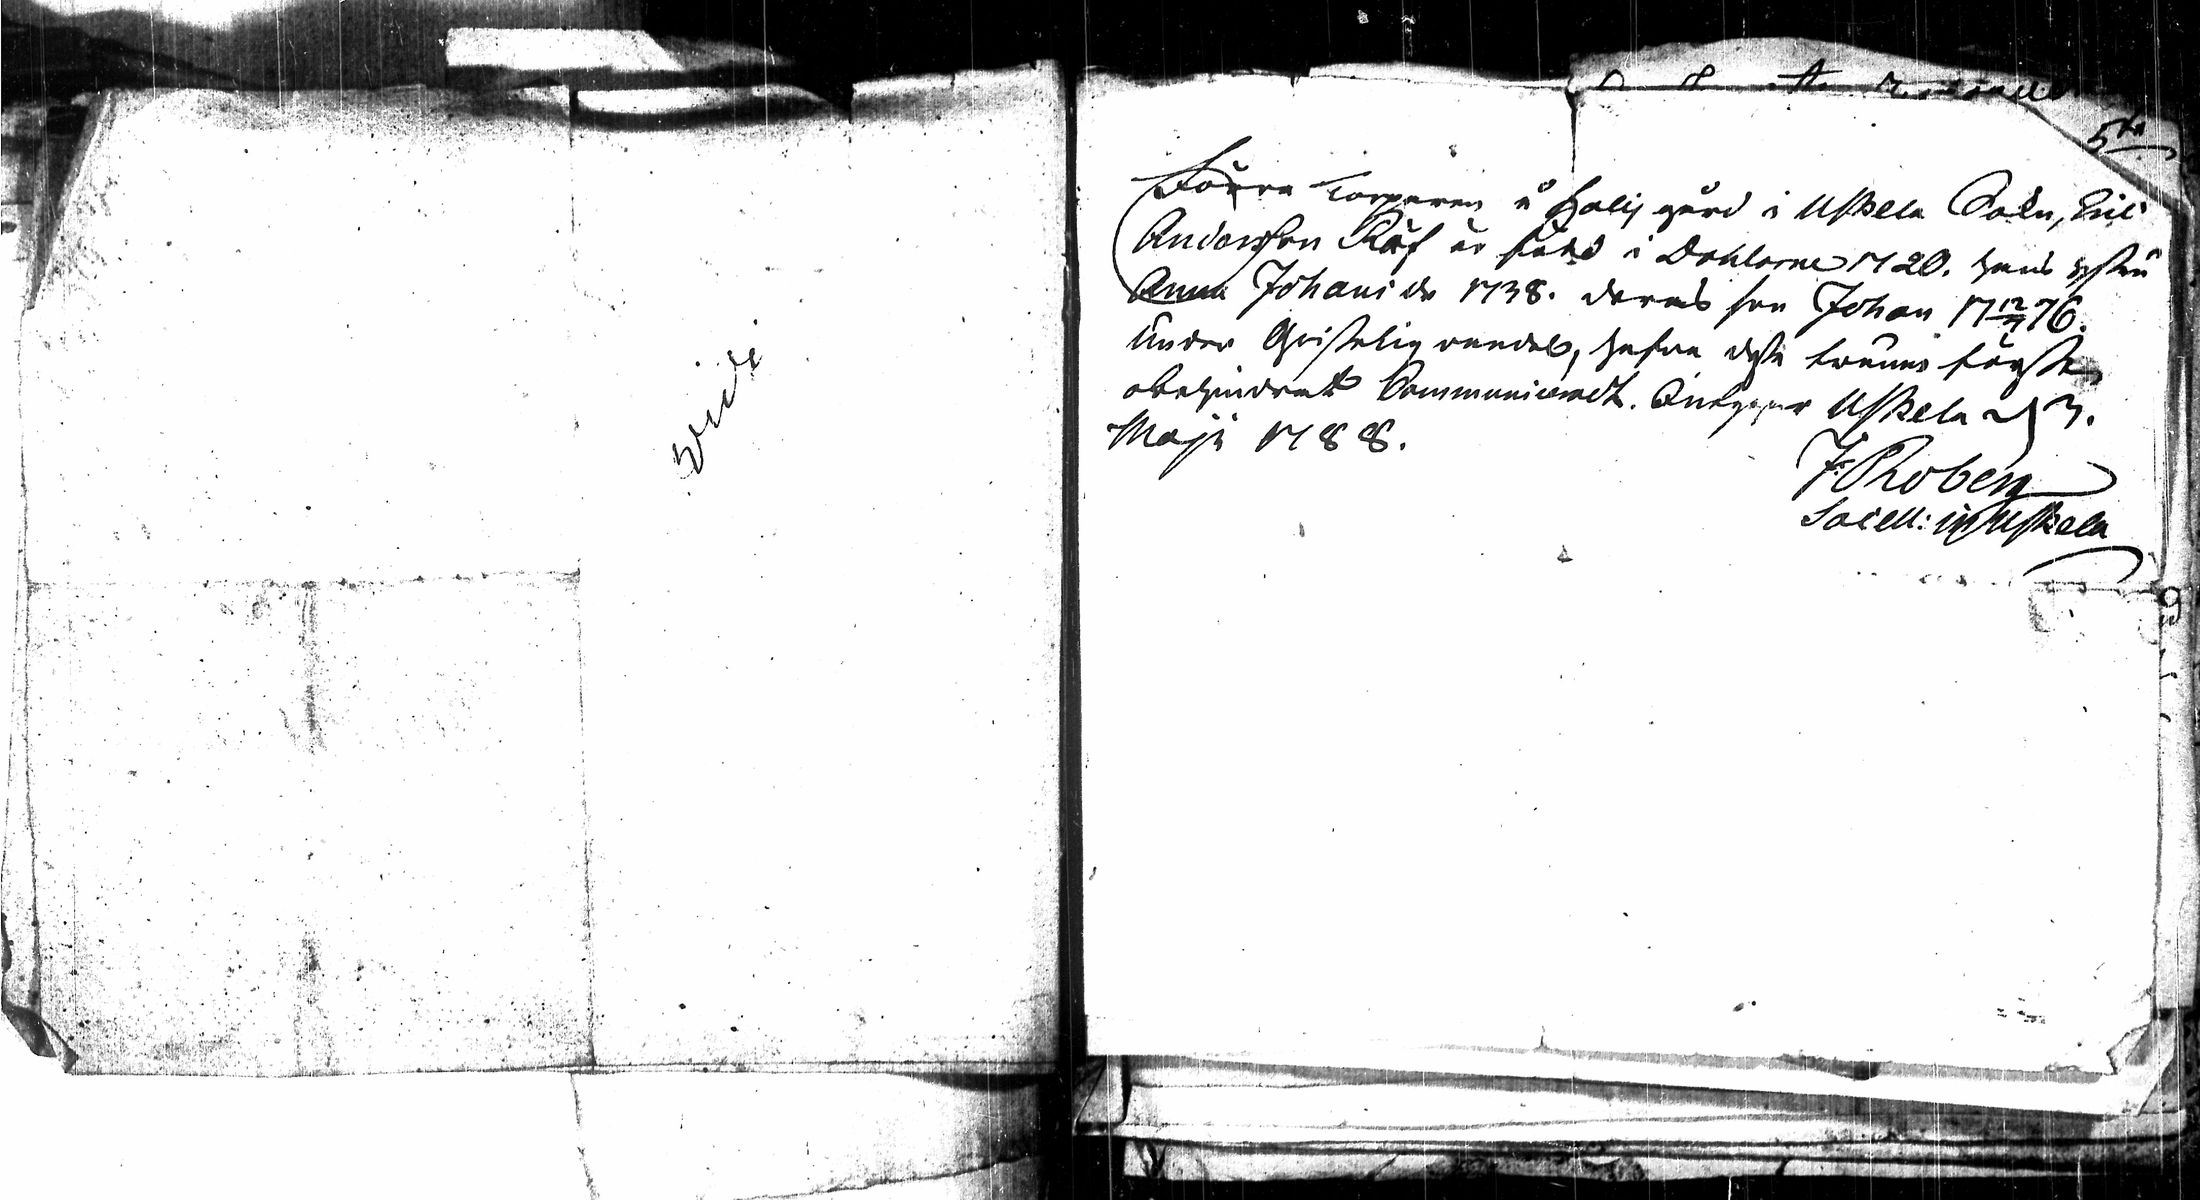 vidi
5te
Förra Torparen å Halis gård i Uskela Sokn, Eric
Andersson Räf är född i Dahlarne 1720. hans hustru
Anna Johansdr 1738. deras son Johan 17 12/7 76.
Under Christelig vandel, hafva desse trenne förste
obehindradt Communiceradt. Uskela d 3.
Maji 1788.
J: Roberg
Sacell: in Uskela
9